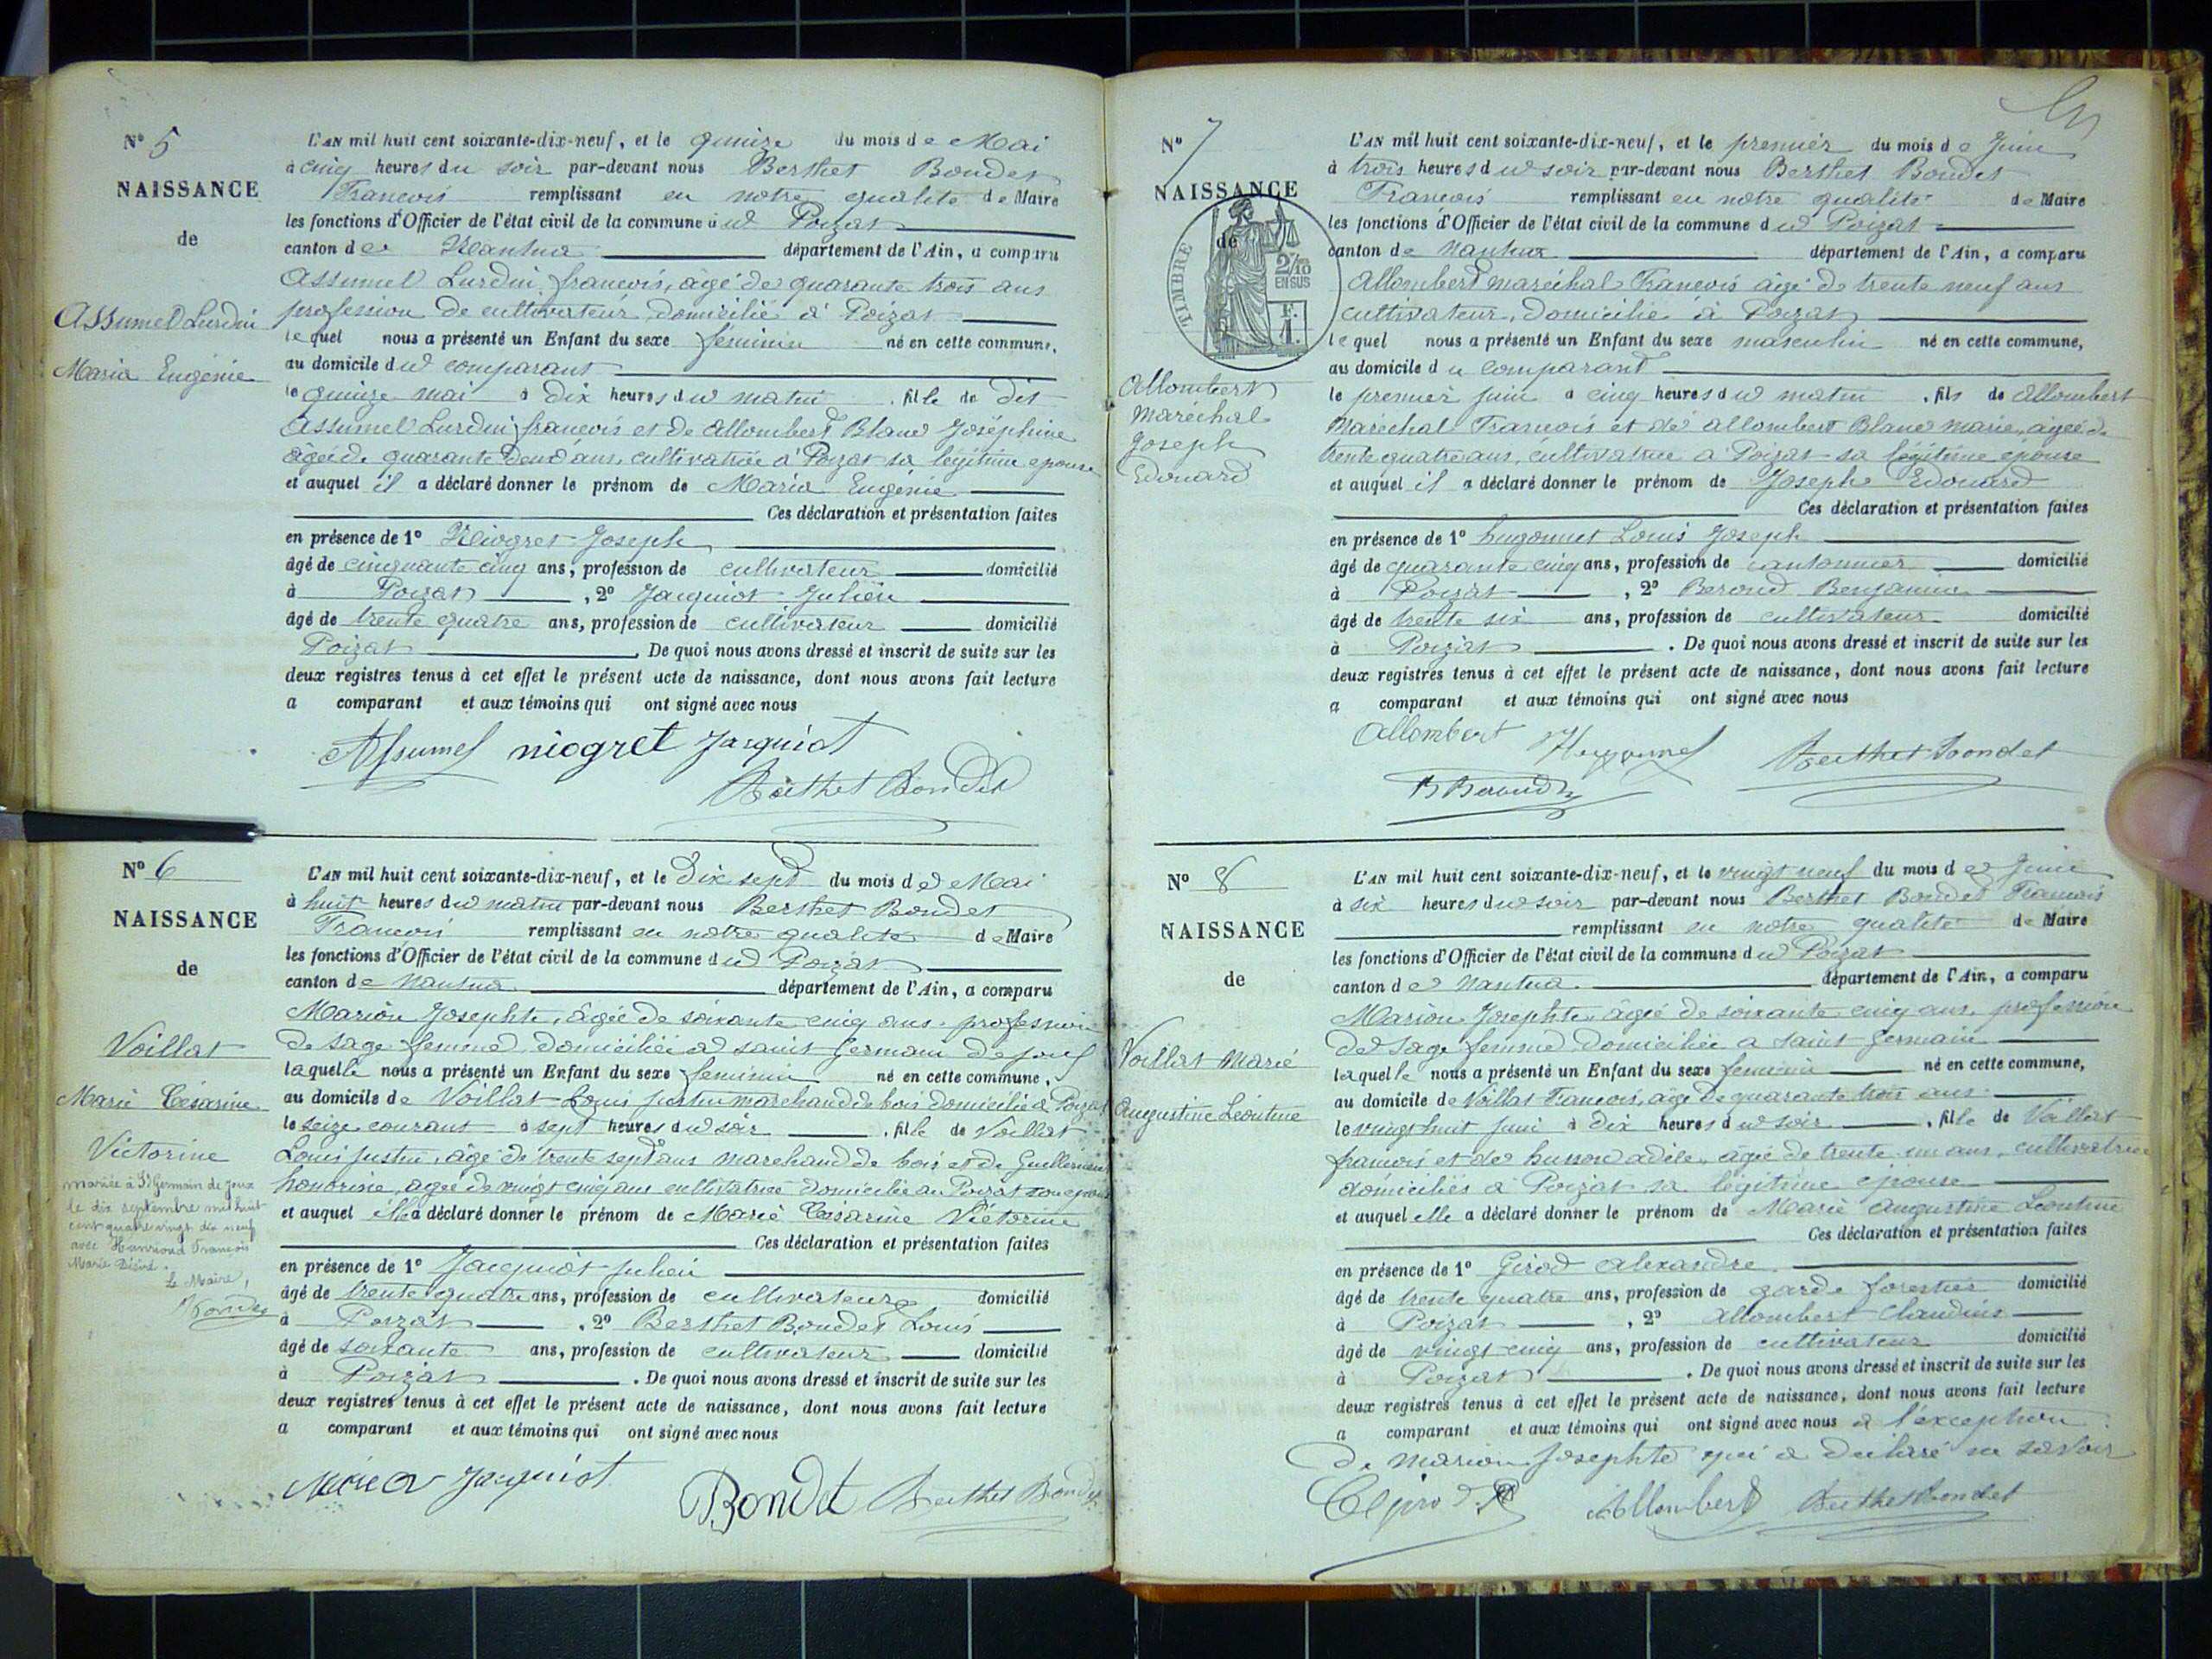 Nº 5
NAISSANCE
de
Assumel Lurdin
Maria Eugénie
L'AN mil huit cent soixante-dix-neuf, et le quinze du mois de Mai
à cinq heures du soir par-devant nous Berthet Bondet
François remplissant en notre qualité de Maire
les fonctions d'Officier de l'état civil de la commune du Poizat
canton de Nantua département de l'Ain, a comparu
Assumel Lurdin françois, âgé de quarante trois ans
profession de cultivateur domicilié à Poizat
lequel nous a présenté un Enfant du sexe féminin né en cette commune,
au domicile du comparant
le quinze mai à dix heures du matin, fille de dit
Assumel Lurdin françois et de Allombert Blanc Joséphine
âgée de quarante deux ans, cultivatrice à Poizat sa légitime épouse
et auquel il a déclaré donner le prénom de Maria Eugénie
Ces déclaration et présentation faites
en présence de 1º Niogret Joseph
âgé de cinquante cinq ans, profession de cultivateur domicilié
à Poizat, 2º Jacquiot Julien
âgé de trente quatre ans, profession de cultivateur domicilié
Poizat. De quoi nous avons dressé et inscrit de suite sur les
deux registres tenus à cet effet le présent acte de naissance, dont nous avons fait lecture
a comparant et aux témoins qui ont signé avec nous
Assumel niogret Jacquiot
Berthet Bondet
Nº 6
NAISSANCE
de
Voillat
Marie Césarine
Victorine
mariée à St Germain de Joux
le dix septembre mil huit
cent quatre vingt dix neuf
avec Hunrioud François
Marie Désiré.
Le Maire,
L'AN mil huit cent soixante-dix-neuf, et le Dix sept du mois de Mai
à huit heures du matin par-devant nous Berthet Bondet
François remplissant en notre qualité de Maire
les fonctions d'Officier de l'état civil de la commune du Poizat
canton de Nantua département de l'Ain, a comparu
Marion Josephte, âgée de soixante cinq ans, profession
de sage femme domiciliée à saint Germain de joux
laquelle nous a présenté un Enfant du sexe féminin né en cette commune,
au domicile de Voillat Louis justin marchand de bois domicilié à Poizat
le seize courant à sept heures du soir, fille de Voillat
Louis justin, âgé de trente sept ans marchand de bois et de Guillermet
honorine, âgée de vingt cinq ans cultivatrice domiciliée au Poizat son épouse
et auquel elle a déclaré donner le prénom de Marie Césarine Victorine
Ces déclaration et présentation faites
en présence de 1º Jacquiot Julien
âgé de trente quatre ans, profession de cultivateur domicilié
à Poizat, 2º Berthet Bondet Louis
âgé de soixante ans, profession de cultivateur domicilié
à Poizat. De quoi nous avons dressé et inscrit de suite sur les
deux registres tenus à cet effet le présent acte de naissance, dont nous avons fait lecture
a comparant et aux témoins qui ont signé avec nous
Jacquiot
Bondet Berthet Bondet
Nº 7
NAISSANCE
de
TIMBRE
2/10
EN SUS
F.
1.
Allombert
Maréchal
Joseph
Edouard
L'AN mil huit cent soixante-dix-neuf, et le premier du mois de Juin
à trois heures du soir par-devant nous Berthet Bondet
François remplissant en notre qualité de Maire
les fonctions d'Officier de l'état civil de la commune du Poizat
canton de Nantua département de l'Ain, a comparu
Allombert maréchal François âgé de trente neuf ans
cultivateur, domicilié à Poizat
lequel nous a présenté un Enfant du sexe masculin né en cette commune,
au domicile du comparant
le premier juin à cinq heures du matin, fils de Allombert
Maréchal François et de allombert Blanc marie, âgée de
trente quatre ans, cultivatrice à Poizat sa légitime épouse
et auquel il a déclaré donner le prénom de Joseph Edouard
Ces déclaration et présentation faites
en présence de 1º hugonnet Louis Joseph
âgé de quarante cinq ans, profession de cantonnier domicilié
à Poizat, 2º Beroud Benjamin
âgé de trente six ans, profession de cultivateur domicilié
à Poizat. De quoi nous avons dressé et inscrit de suite sur les
deux registres tenus à cet effet le présent acte de naissance, dont nous avons fait lecture
a comparant et aux témoins qui ont signé avec nous
Allombert Hugonnet Berthet Bondet
B Beroud
Nº 8
NAISSANCE
de
Voillat Marie
Augustine Léontine
L'AN mil huit cent soixante-dix-neuf, et le vingt neuf du mois de Juin
à six heures du soir par-devant nous Berthet Bondet François
remplissant en notre qualité de Maire
les fonctions d'Officier de l'état civil de la commune du Poizat
canton de Nantua département de l'Ain, a comparu
Marion Josephte, âgée de soixante cinq ans, profession
de sage femme domiciliée à saint Germain
laquelle nous a présenté un Enfant du sexe féminin né en cette commune,
au domicile de Voillat François, âgé de quarante trois ans
le vingt huit juin à dix heures du soir, fille de Voillat
françois et de husson adèle, âgée de trente un ans, cultivatrice
domiciliés à Poizat sa légitime épouse
et auquel elle a déclaré donner le prénom de Marie Augustine Léontine
Ces déclaration et présentation faites
en présence de 1º Girod Alexandre
âgé de trente quatre ans, profession de garde forestier domicilié
à Poizat, 2º Allombert Claudius
âgé de vingt cinq ans, profession de cultivateur domicilié
à Poizat. De quoi nous avons dressé et inscrit de suite sur les
deux registres tenus à cet effet le présent acte de naissance, dont nous avons fait lecture
a comparant et aux témoins qui ont signé avec nous à l'exception
de marion josephte qui a déclaré ne savoir
Allombert Berthet Bondet